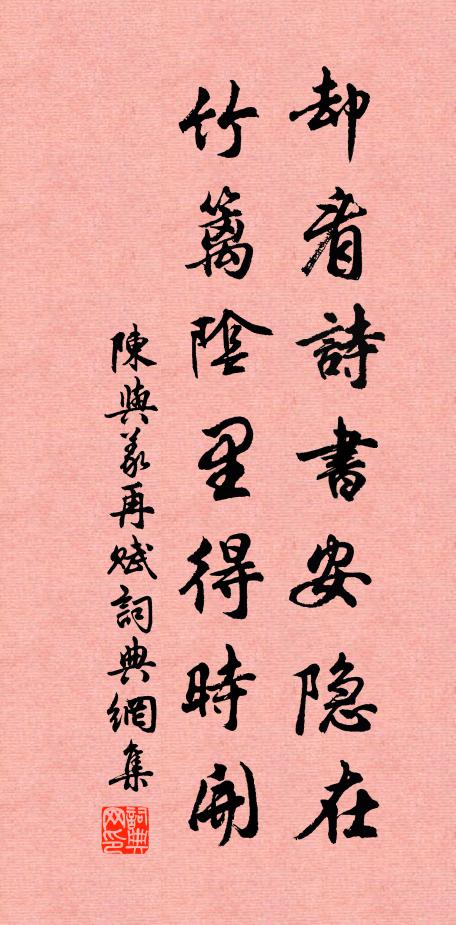 却看詩書安隐在
竹篱陰里得時開
陳與義再赋詞典網集
詞典网印